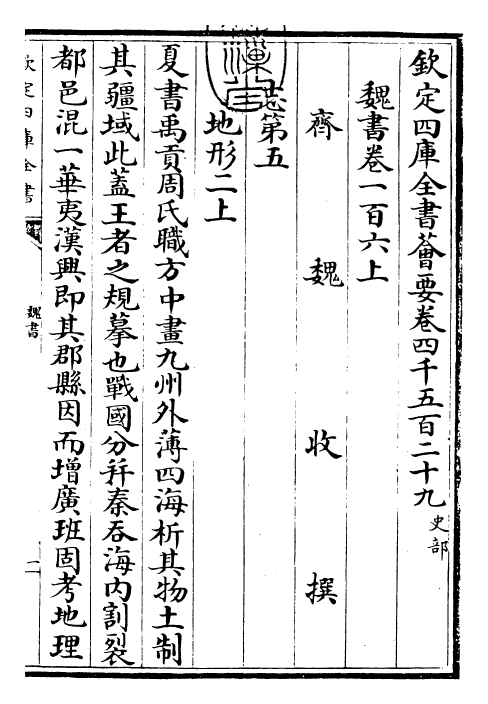 欽定四庫全書薈要卷四千五百二十九史部
魏書卷一百六上
齊魏收撰
志第五
地形二上
夏書禹貢周氏職方中畫九州外薄四海析其物土制
其疆域此蓋王者之規摹也戰國分并秦吞海內割裂
都邑混一華夷漢興即其郡縣因而增廣班固考地理
欽定四庫全書
魏書